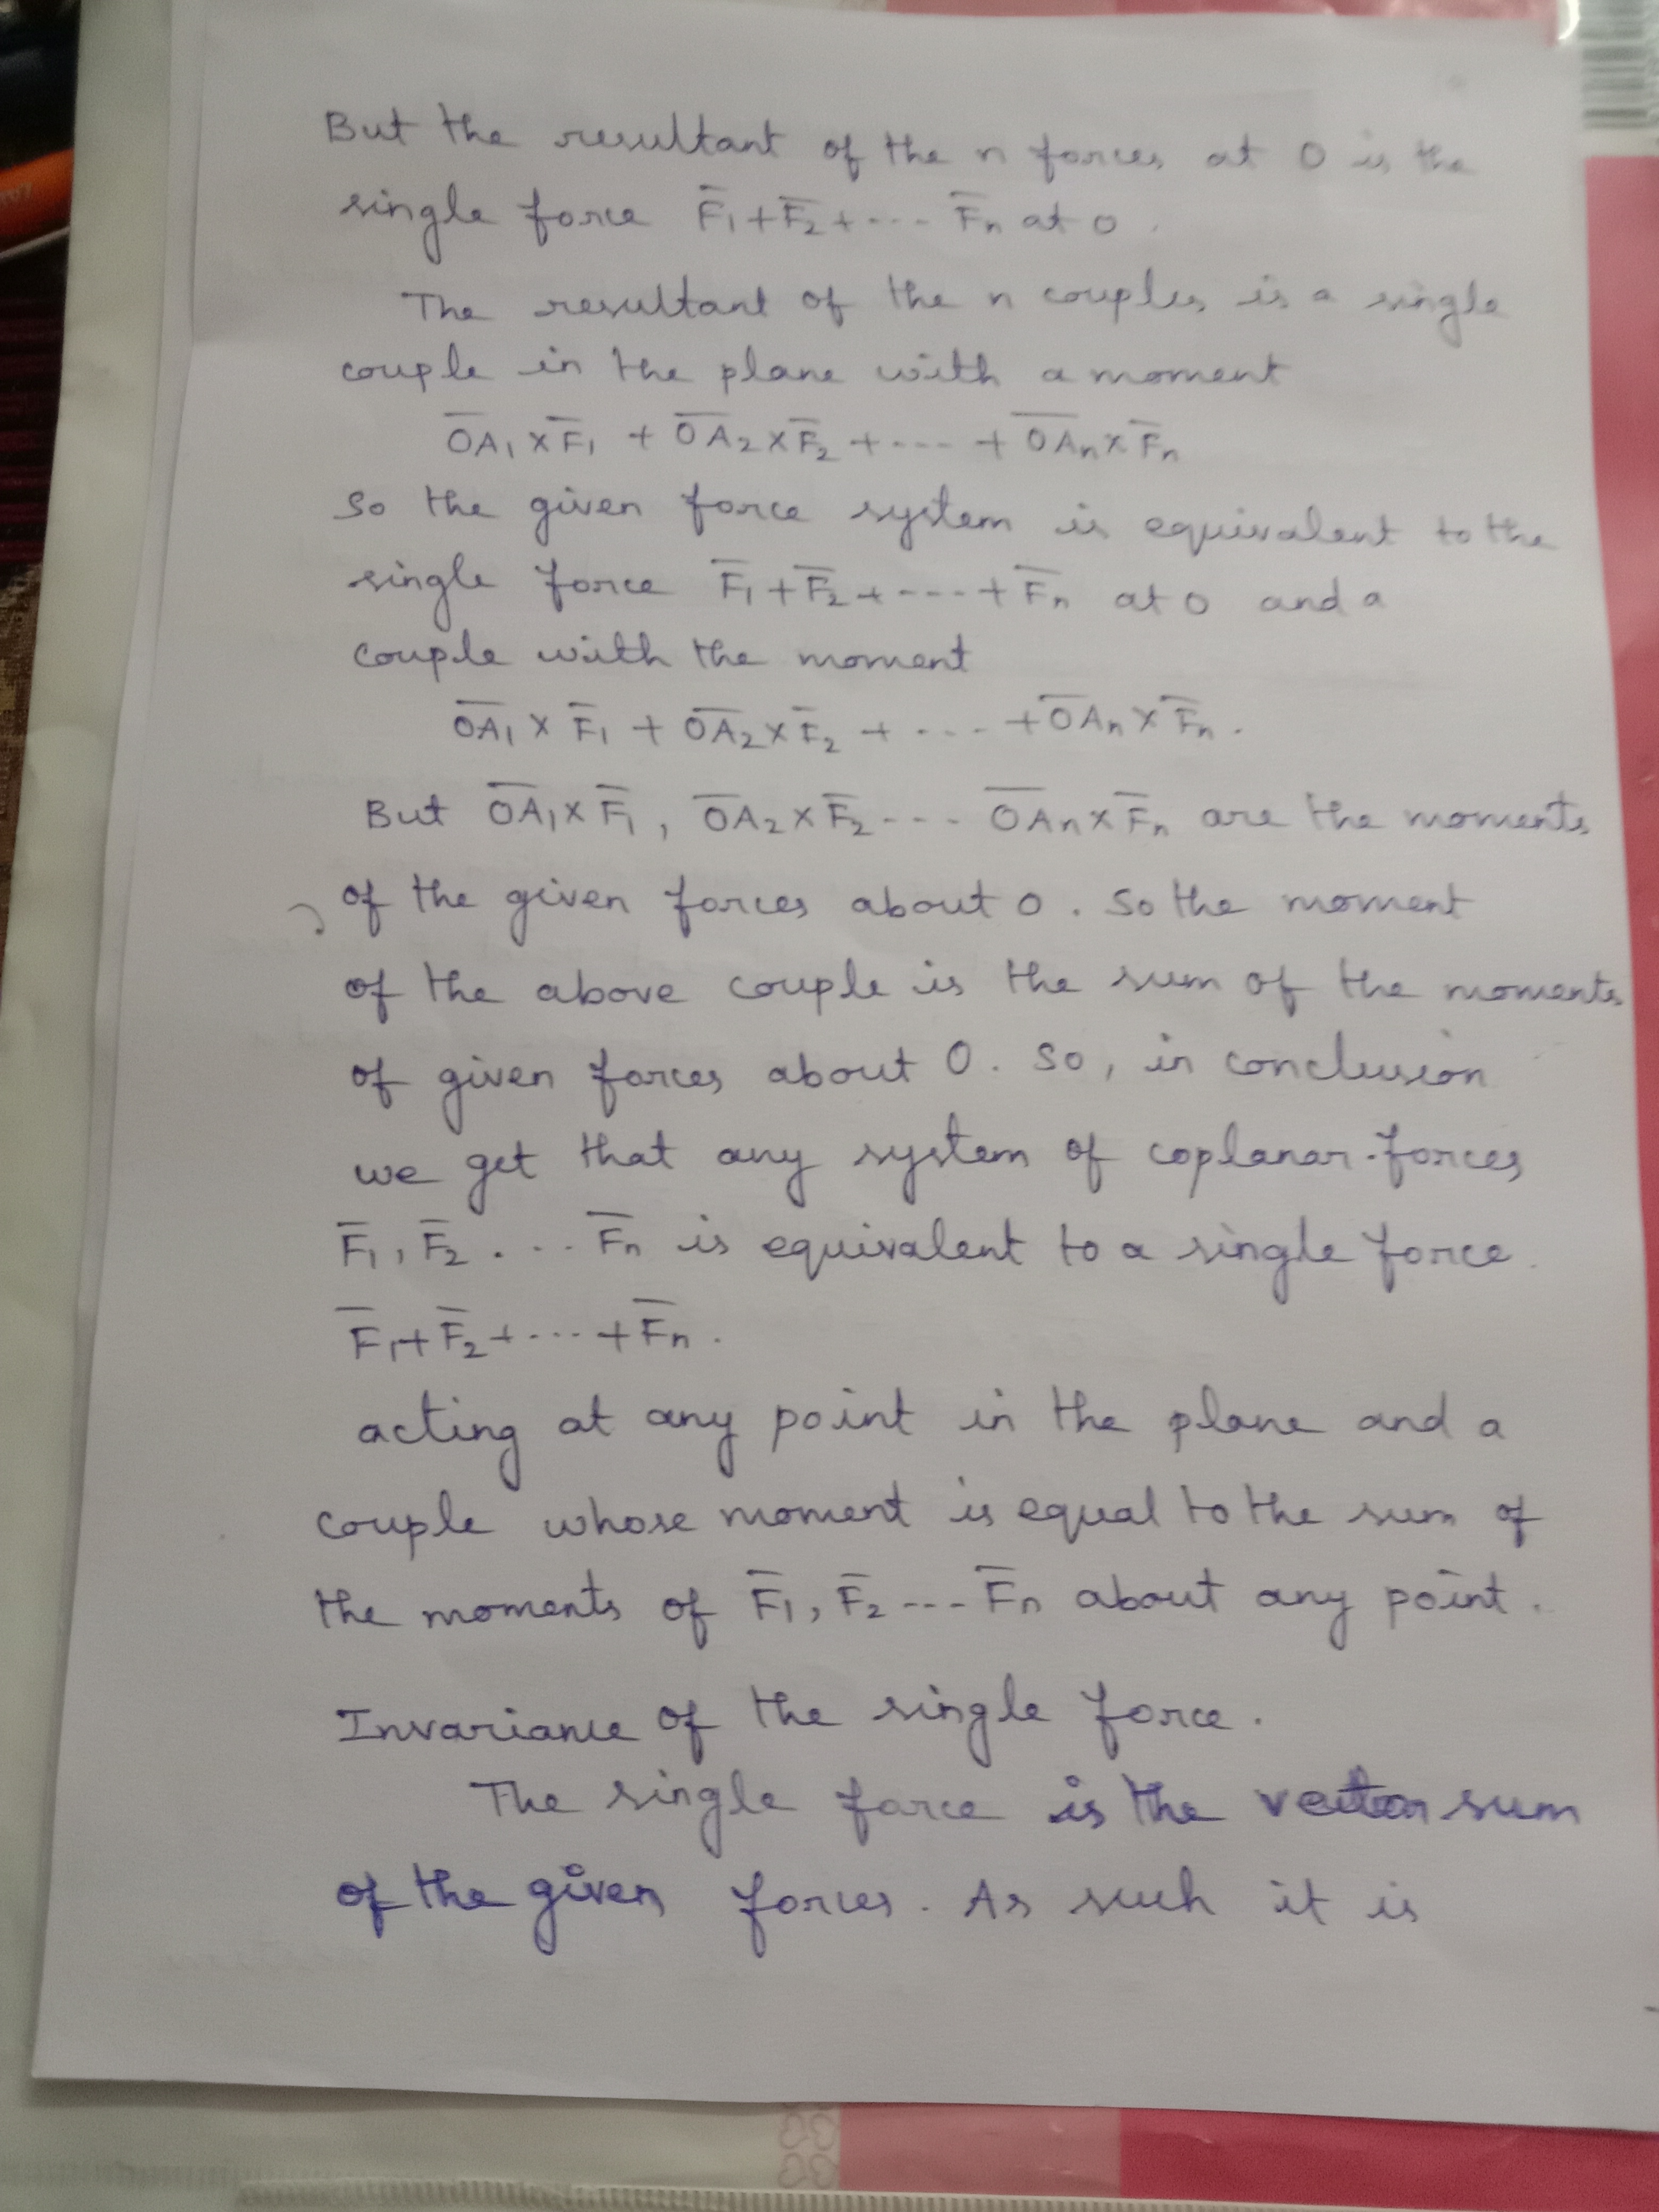 But the resultant of the n forces at O is the
single force F̅₁+F̅₂+---- F̅ₙ at O.
The resultant of the n couples is a single
couple in the plane with a moment
O̅A̅₁×F̅₁ + O̅A̅₂×F̅₂+----+O̅A̅ₙ×F̅ₙ
So the given force system is equivalent to the
single force F̅₁+F̅₂+----+F̅ₙ at O and a
couple with the moment
O̅A̅₁×F̅₁ + O̅A̅₂×F̅₂ + .... +O̅A̅ₙ×F̅ₙ.
But O̅A̅₁×F̅₁, O̅A̅₂×F̅₂--- O̅A̅ₙ×F̅ₙ are the moments
of the given forces about O. So the moment
of the above couple is the sum of the moments
of given forces about O. So, in conclusion
we get that any system of coplanar-forces
F̅₁, F̅₂ .... F̅ₙ is equivalent to a single force
F̅₁+F̅₂+....+F̅ₙ.
acting at any point in the plane and a
couple whose moment is equal to the sum of
the moments of F̅₁, F̅₂---F̅ₙ about any point.
Invariance of the single force.
The single force is the vector sum
of the given forces. As such it is